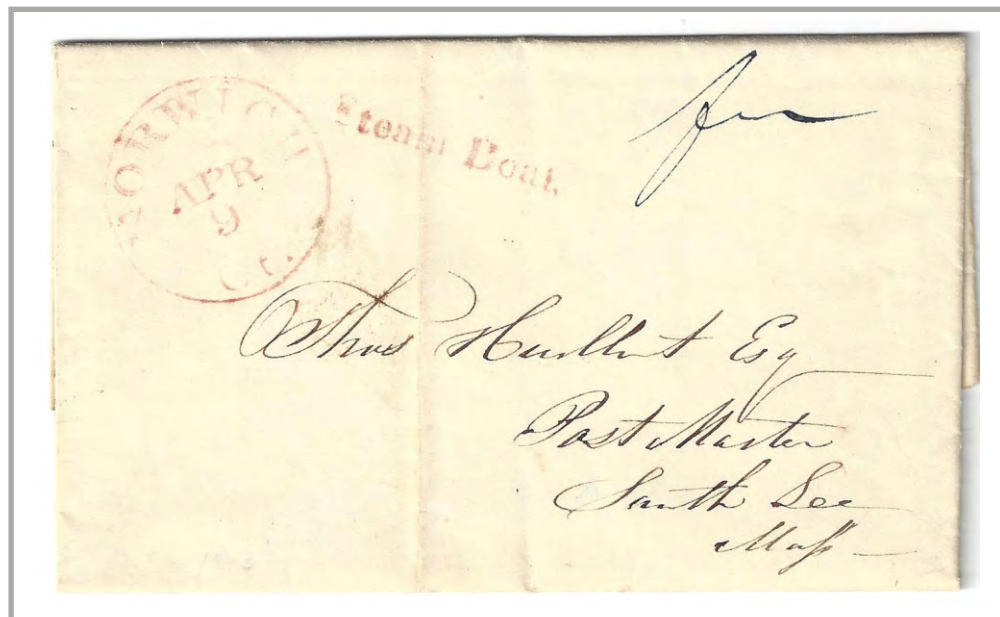 NORWICH
APR
9
Ct.
Steam Boat.
Thos Hurlbut Esq
Post Master
South Lee
Mass